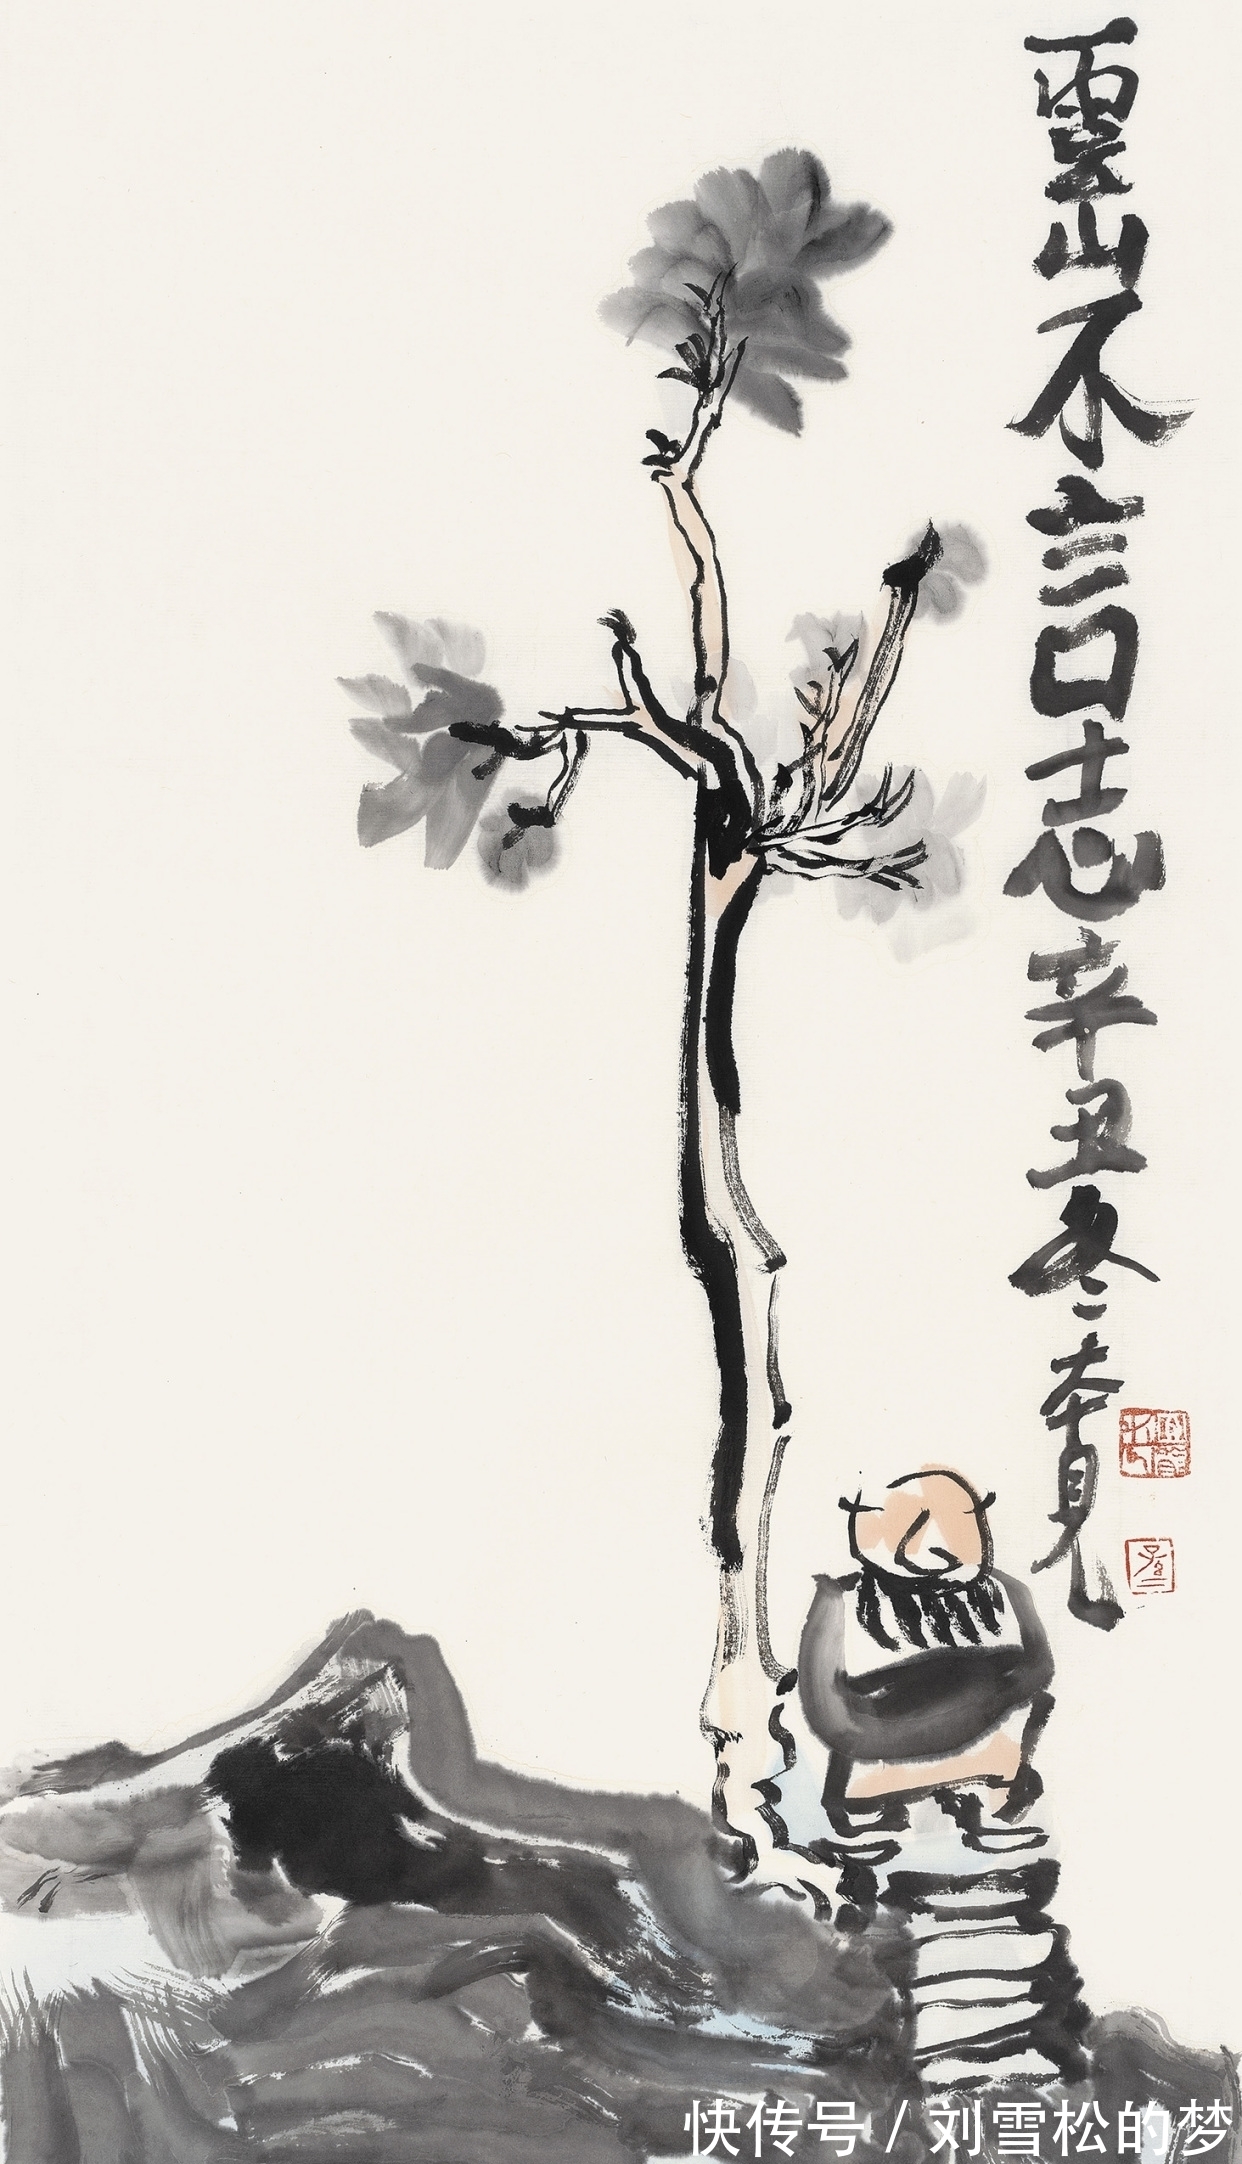 雲山不言志辛丑冬本見
快传号/刘雪松的梦